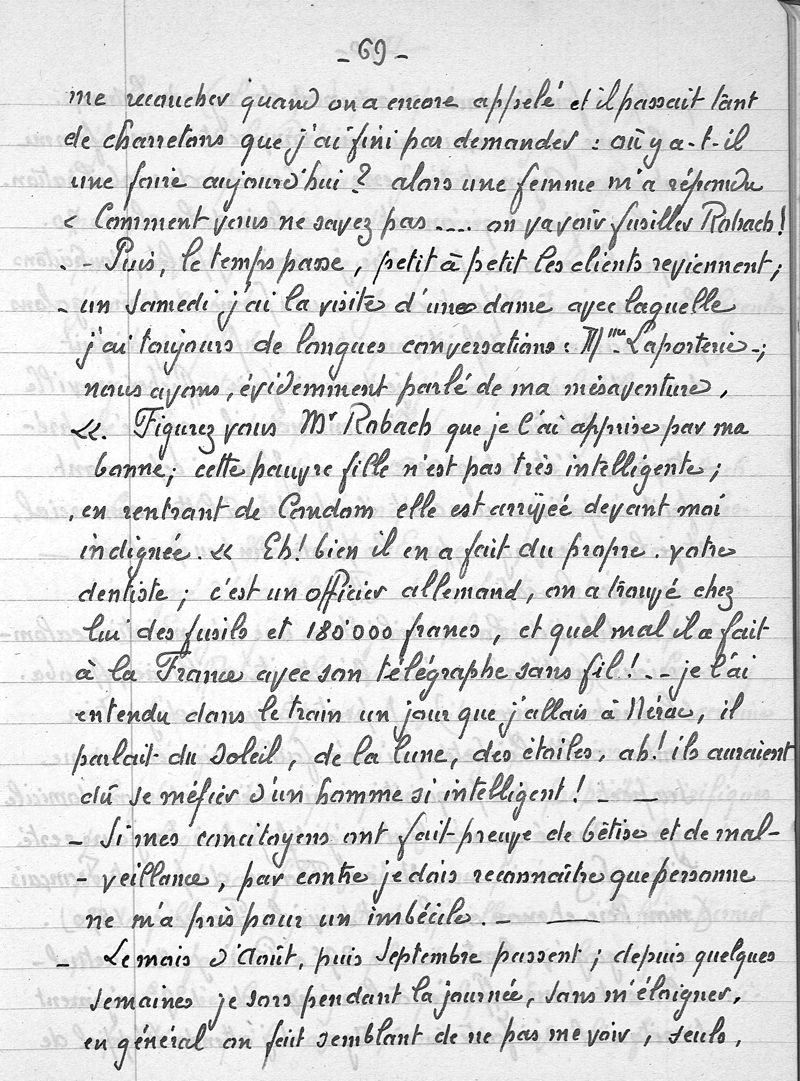 - 69 -
me recoucher quand on a encore appelé et il passait tant
de charretons que j'ai fini par demander : où y a-t-il
une foire aujourd'hui ? alors une femme m'a répondu
< Comment vous ne savez pas .... on va voir fusiller Robach !
. - Puis, le temps passe, petit à petit les clients reviennent ;
- un Samedi j'ai la visite d'une dame avec laquelle
j'ai toujours de longues conversations : Mme Laporterie - ;
nous avons, évidemment parlé de ma mésaventure,
<<. Figurez vous Mr Robach que je l'ai apprise par ma
bonne ; cette pauvre fille n'est pas très intelligente ;
. en rentrant de Condom elle est arrivée devant moi
indignée. << Eh ! bien il en a fait du propre. votre
dentiste ; c'est un officier allemand, on a trouvé chez
lui des fusils et 180'000 francs, et quel mal il a fait
à la France avec son télégraphe sans fil ! - - je l'ai
entendu dans le train un jour que j'allais à Nérac, il
parlait du soleil, de la lune, des étoiles, ah ! ils auraient
dû se méfier d'un homme si intelligent ! - —
- Si mes concitoyens ont fait preuve de bêtise et de mal-
- veillance, par contre je dois reconnaître que personne
ne m'a pris pour un imbécile. - —
- Le mois d'Août, puis Septembre passent ; depuis quelques
semaines je sors pendant la journée, sans m'éloigner,
en général on fait semblant de ne pas me voir, seuls,